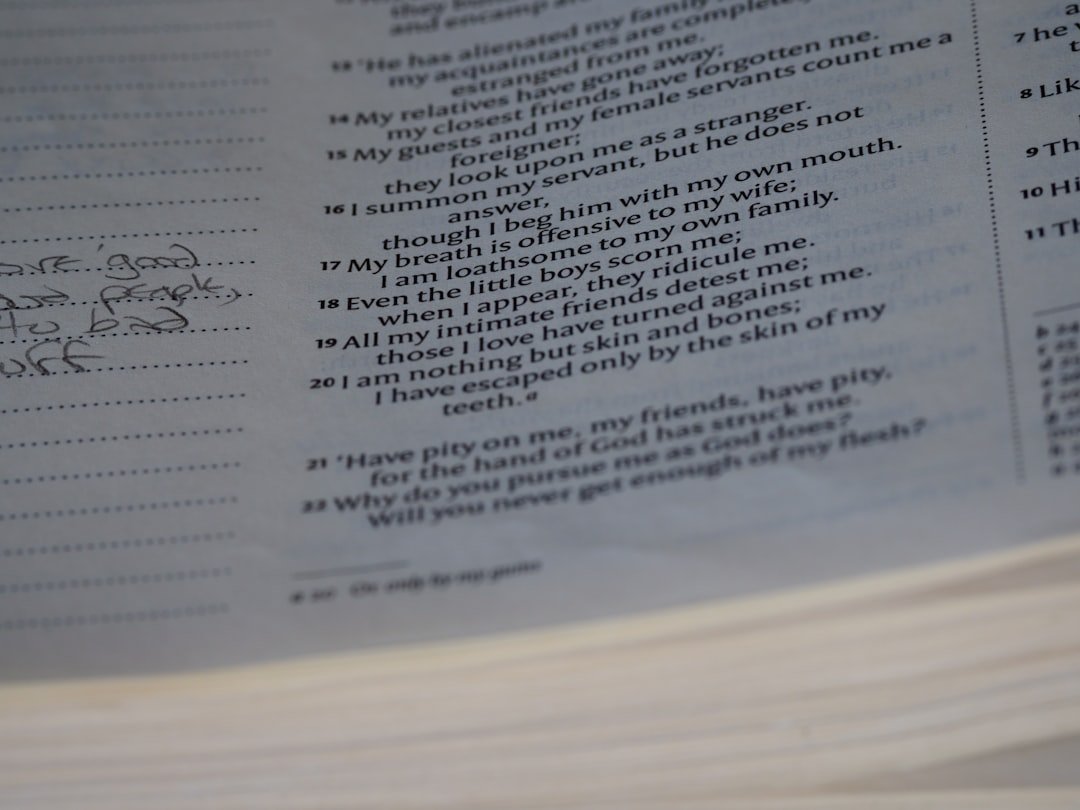 good
people,
bad
and encamp
13 'He has alienated my family
my acquaintances are complete
estranged from me.
14 My relatives have gone away;
my closest friends have forgotten me.
15 My guests and my female servants count me a
foreigner;
they look upon me as a stranger.
16 I summon my servant, but he does not
answer,
though I beg him with my own mouth.
17 My breath is offensive to my wife;
I am loathsome to my own family.
18 Even the little boys scorn me;
when I appear, they ridicule me.
19 All my intimate friends detest me;
those I love have turned against me.
20 I am nothing but skin and bones;
I have escaped only by the skin of my
teeth.a
21 'Have pity on me, my friends, have pity,
for the hand of God has struck me.
22 Why do you pursue me as God does?
Will you never get enough of my flesh?
a 20 Or only by my gums
7 he
8 Lik
9 Th
10 Hi
11 Th